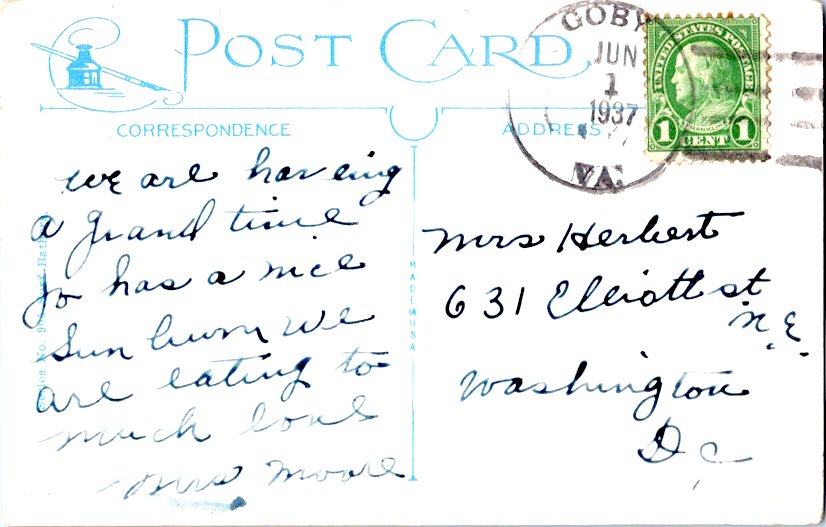 POST CARD
CORRESPONDENCE
ADDRESS
GOBY
JUN
1
1937
VA.
UNITED STATES POSTAGE
FRANKLIN
1 CENT 1
we are haveing
a grand time
Jo has a nice
Sun burn We
are eating to
much love
Mrs Moore
MADE IN USA
Mrs Herbert
631 Elliott st
N.E.
Washington
D C